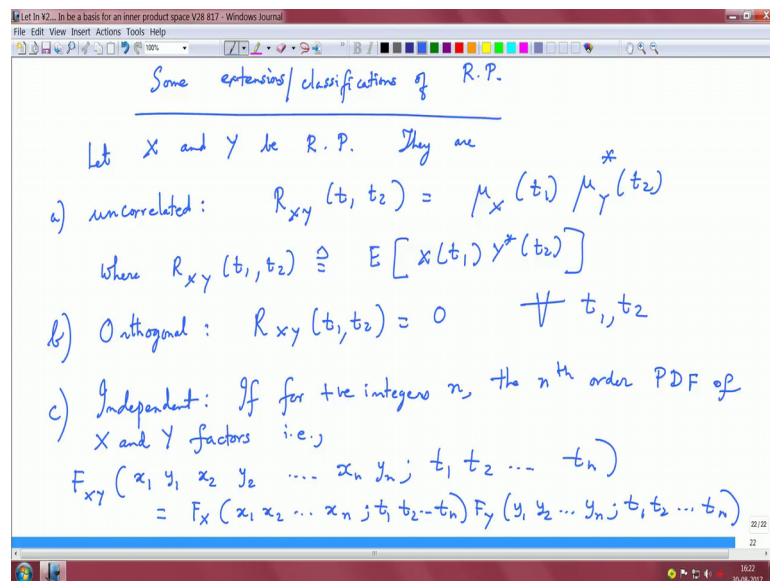 Let In ¥2... In be a basis for an inner product space V28 817 - Windows Journal
File Edit View Insert Actions Tools Help
100%
Some extensions/classifications of R.P.
Let X and Y be R.P. They are
a) uncorrelated: R_XY (t, t2) = μ_X (t1) μ_Y^* (t2)
where R_XY (t1, t2) ≙ E [X(t1) Y*(t2)]
b) Orthogonal: R_XY (t1, t2) = 0 ∀ t1, t2
c) Independent: If for +ve integers n, the nth order PDF of
X and Y factors i.e.,
F_XY (x1 y1 x2 y2 .... xn yn; t1 t2 ... tn)
= F_X (x1 x2 ... xn; t1 t2 -- tn) F_Y (y1 y2 ... yn; t1 t2 ... tn)
22/22
22
16:22
30-08-2017